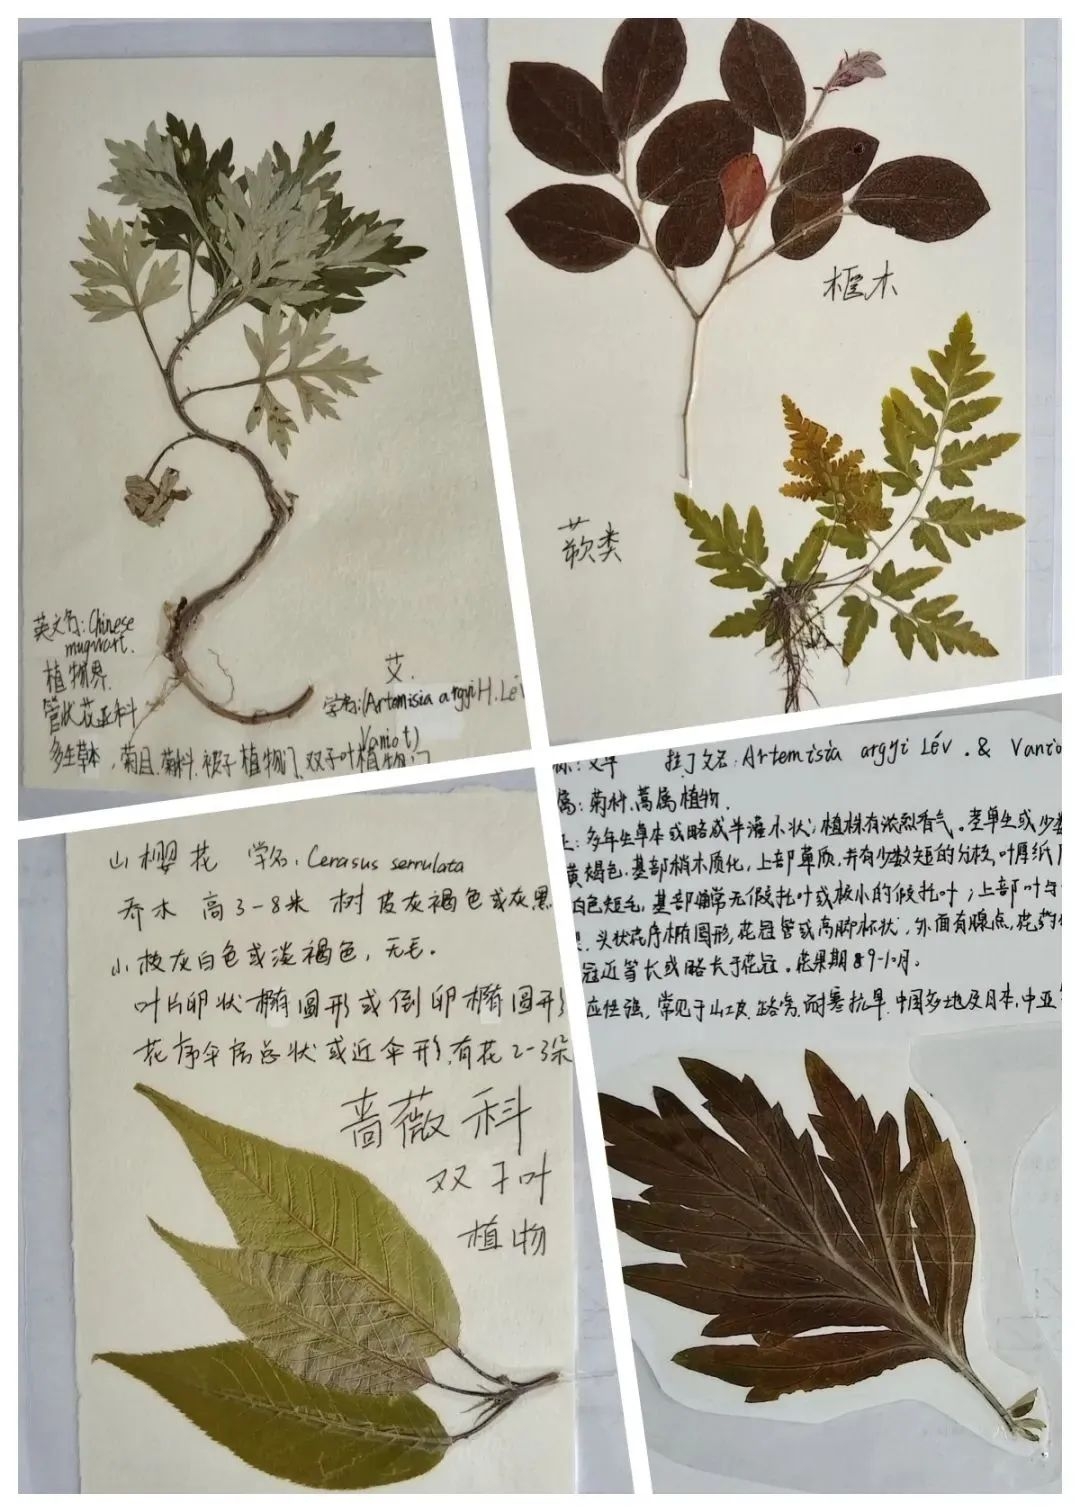 英文名：Chinese
mugwort.
植物界.
管状花亚科
多生草本，菊目.菊科.被子植物门.双子叶植物门
艾.
学名：(Artemisia argyi H. Lév
Vaniot)
檵木
蕨类
山樱花 学名：Cerasus serrulata
乔木 高3-8米 树皮灰褐色或灰黑
小枝灰白色或淡褐色，无毛。
叶片卵状椭圆形或倒卵椭圆形
花序伞房总状或近伞形，有花2-3朵
蔷薇科
双子叶
植物
拉丁文名：Artemisia argyi Lév. & Vanio
属：菊科.蒿属植物.
多年生草本或略成半灌木状；植株有浓烈香气。茎单生或少数
黄褐色.基部稍木质化，上部草质.并有少数短的分枝，叶厚纸
白色短毛，基部通常无假托叶或极小的假托叶；上部叶与
头状花序椭圆形，花冠管或高脚杯状，外面有腺点，花药
冠近等长或略长于花冠。花果期 9-10月。
应性强，常见于山坡.路旁.耐寒抗旱.中国多地及日本，中亚